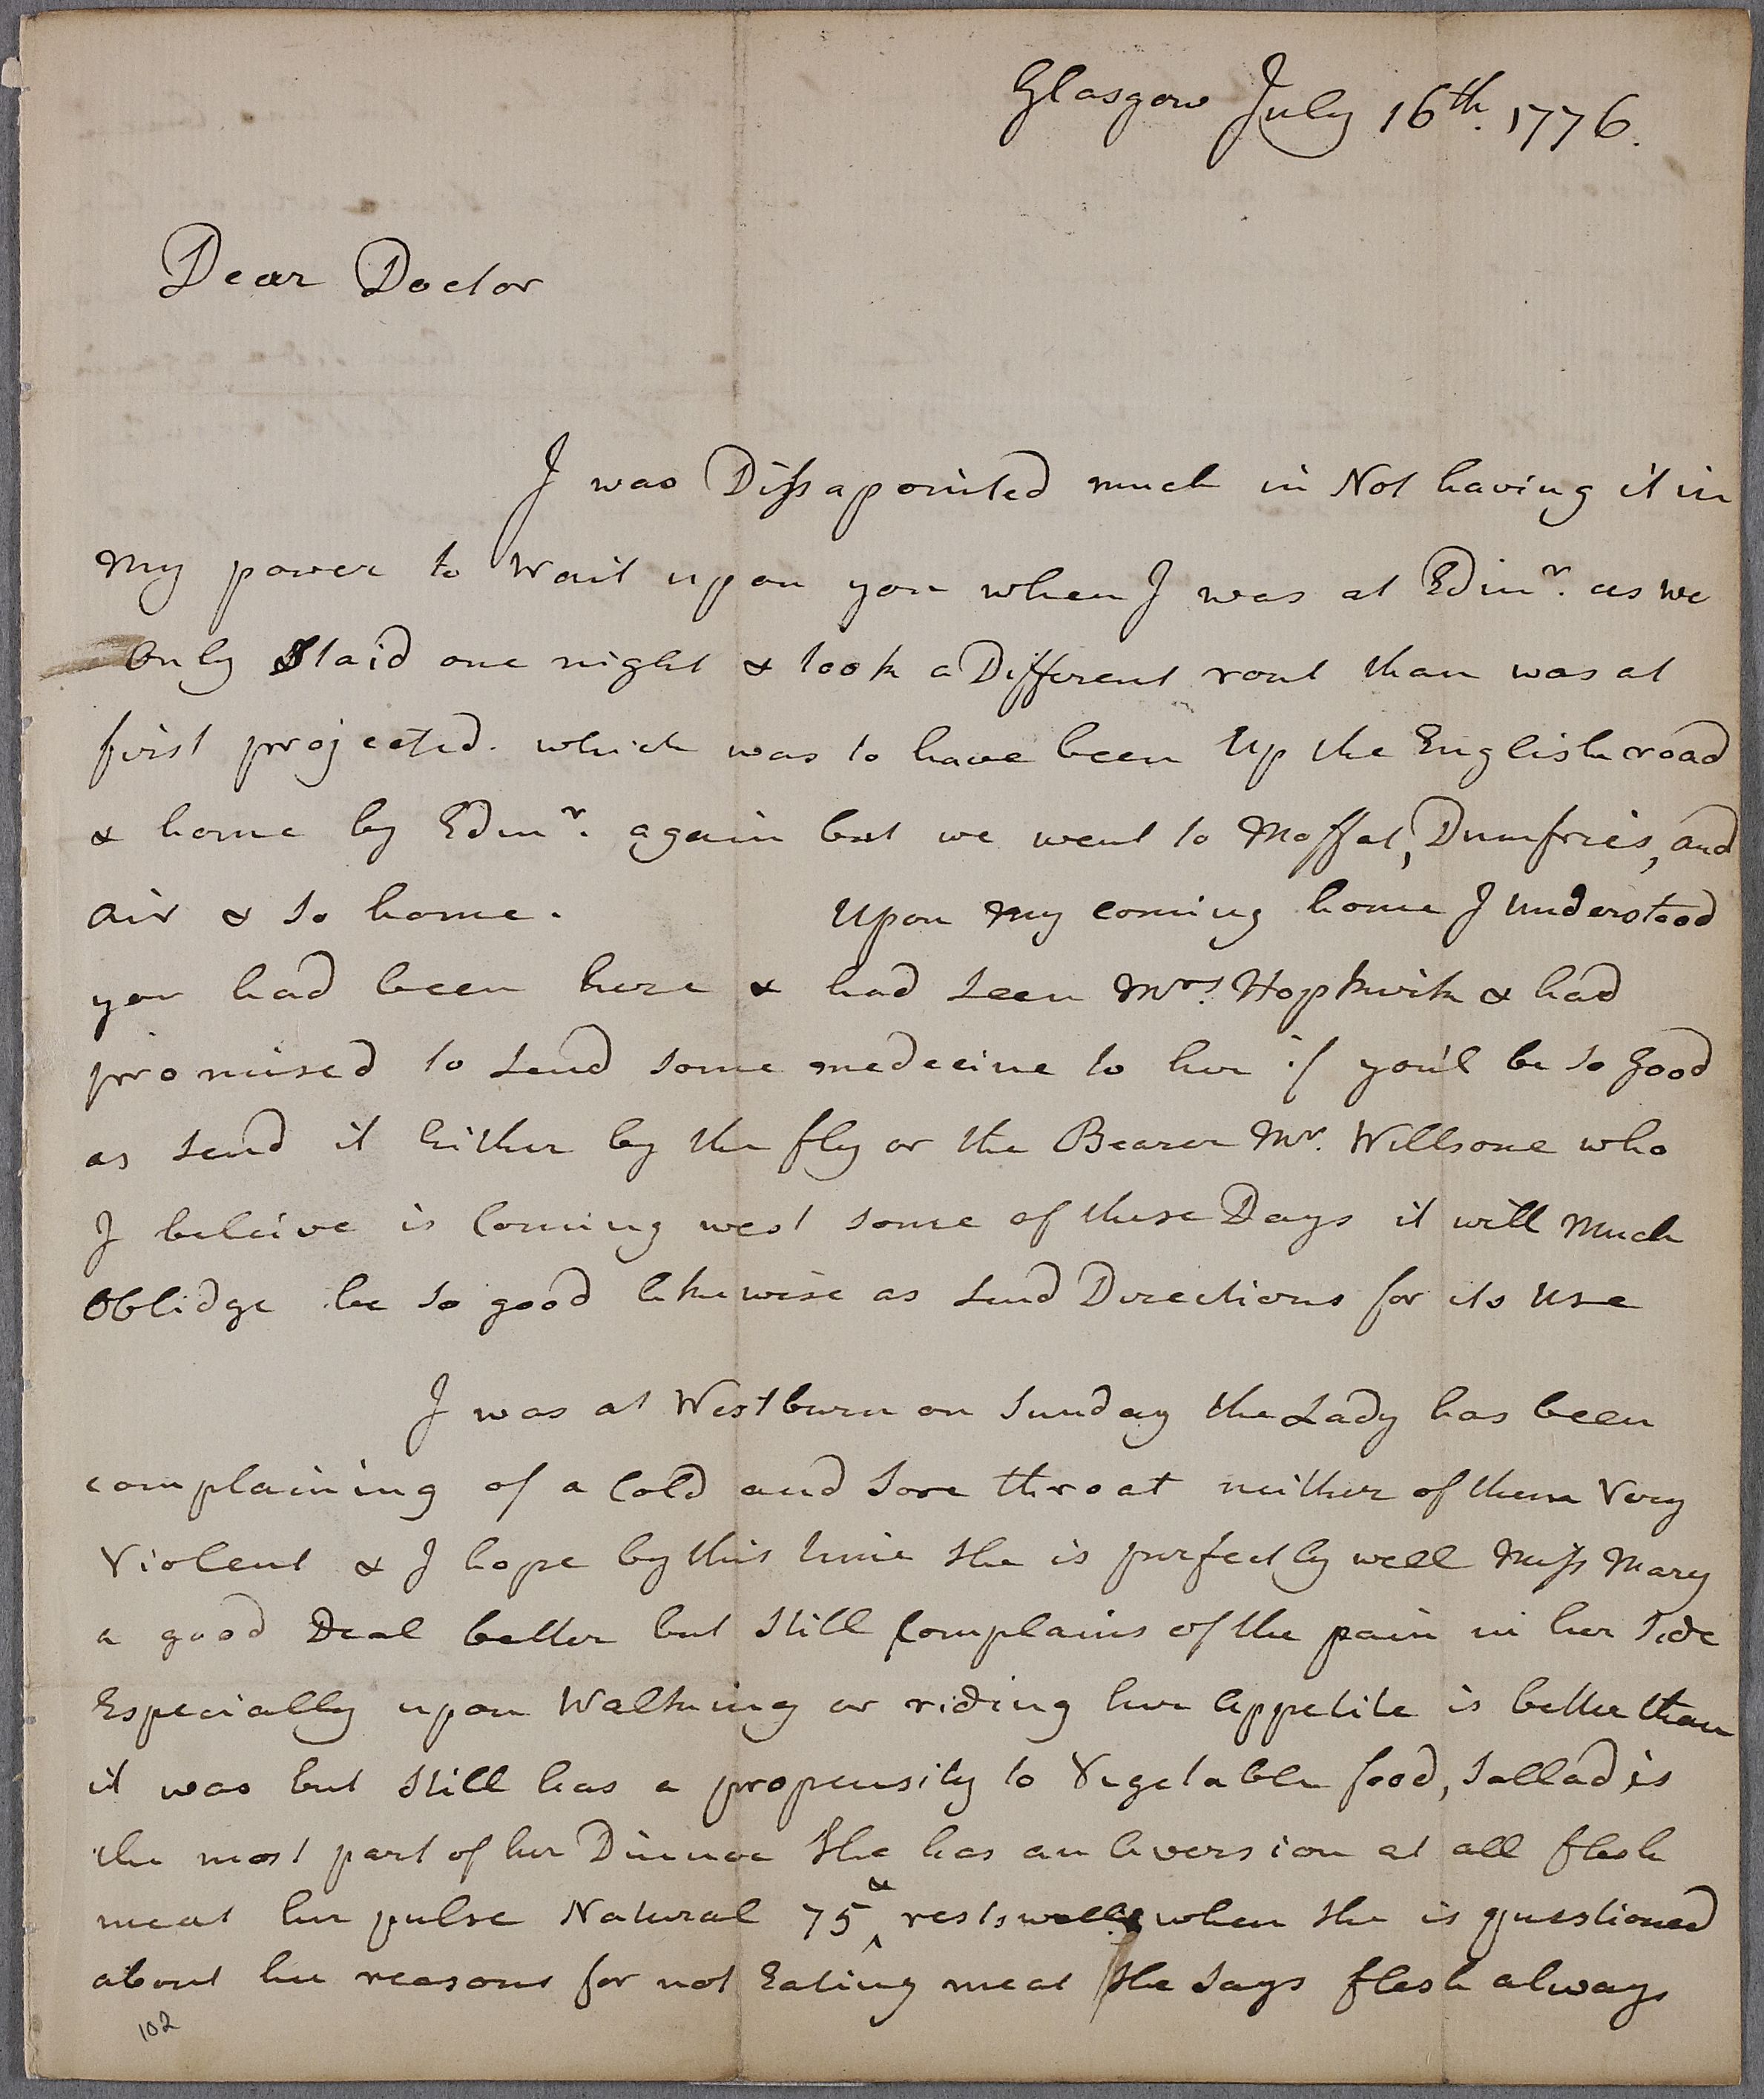 Glasgow July 16th. 1776.
Dear Doctor
I was Dissapointed much in Not having it in
my power to Wait upon you when I was at Edinr. as we
Only Staid one night & took a Different rout than was at
first projected. which was to have been Up the English road
& home by Edinr. again but we went to Moffat, Dumfries, and
Air & so home. Upon my coming home I understood
you had been here & had seen Mrs. Hopkirk & had
promised to send some medecine to her if you'l be so good
as send it Either by the fly or the Bearer Mr. Willsone who
I beleive is Coming west some of these Days it will Much
Oblidge be so good likewise as send Directions for its Use
I was at Westburn on Sunday the Lady has been
complaining of a Cold and Sore throat neither of them Very
Violent & I hope by this time she is perfectly well Miss Mary
a good Deal better but still Complains of the pain in her Side
Especially upon Walking or riding her Appetite is better than
it was but still has a propensity to Vegetable food, Sallad is
the most part of her Dinner She has an Aversion at all flesh
meat her pulse Natural 75 & rests well when she is questioned
about her reasons for not Eating meat She says flesh always
102